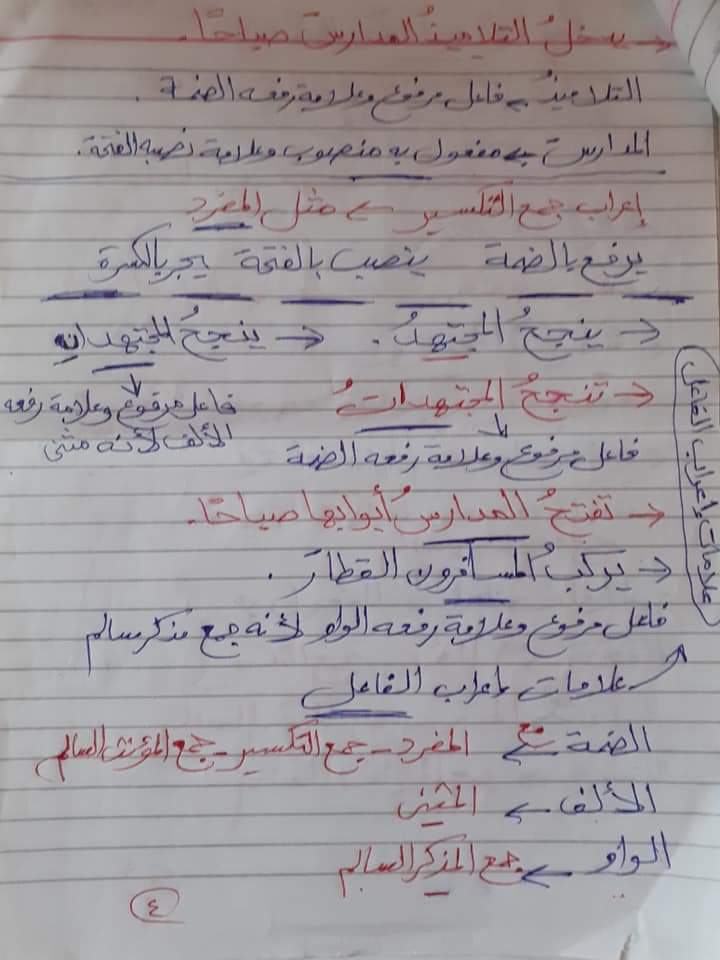 ← يدخلُ التلاميذُ المدارسَ صباحًا.
التلاميذُ ← فاعل مرفوع وعلامة رفعه الضمة.
المدارسَ ← مفعول به منصوب وعلامة نصبه الفتحة.
إعراب جمع التكسير ← مثل المفرد
يرفع بالضمة ينصب بالفتحة يجر بالكسرة
← ينجحُ المجتهدُ. ← ينجحُ المجتهدانِ
فاعل مرفوع وعلامة رفعه
الألف لأنه مثنى
← تنجحُ المجتهداتُ
فاعل مرفوع وعلامة رفعه الضمة
← تفتحُ المدارسُ أبوابها صباحًا.
← يركبُ المسافرون القطارَ.
فاعل مرفوع وعلامة رفعه الواو لأنه جمع مذكر سالم
علامات إعراب الفاعل
علامات إعراب الفاعل
الضمة ← مع المفرد - جمع التكسير - جمع المؤنث السالم
الألف ← المثنى
الواو ← جمع المذكر السالم
٤